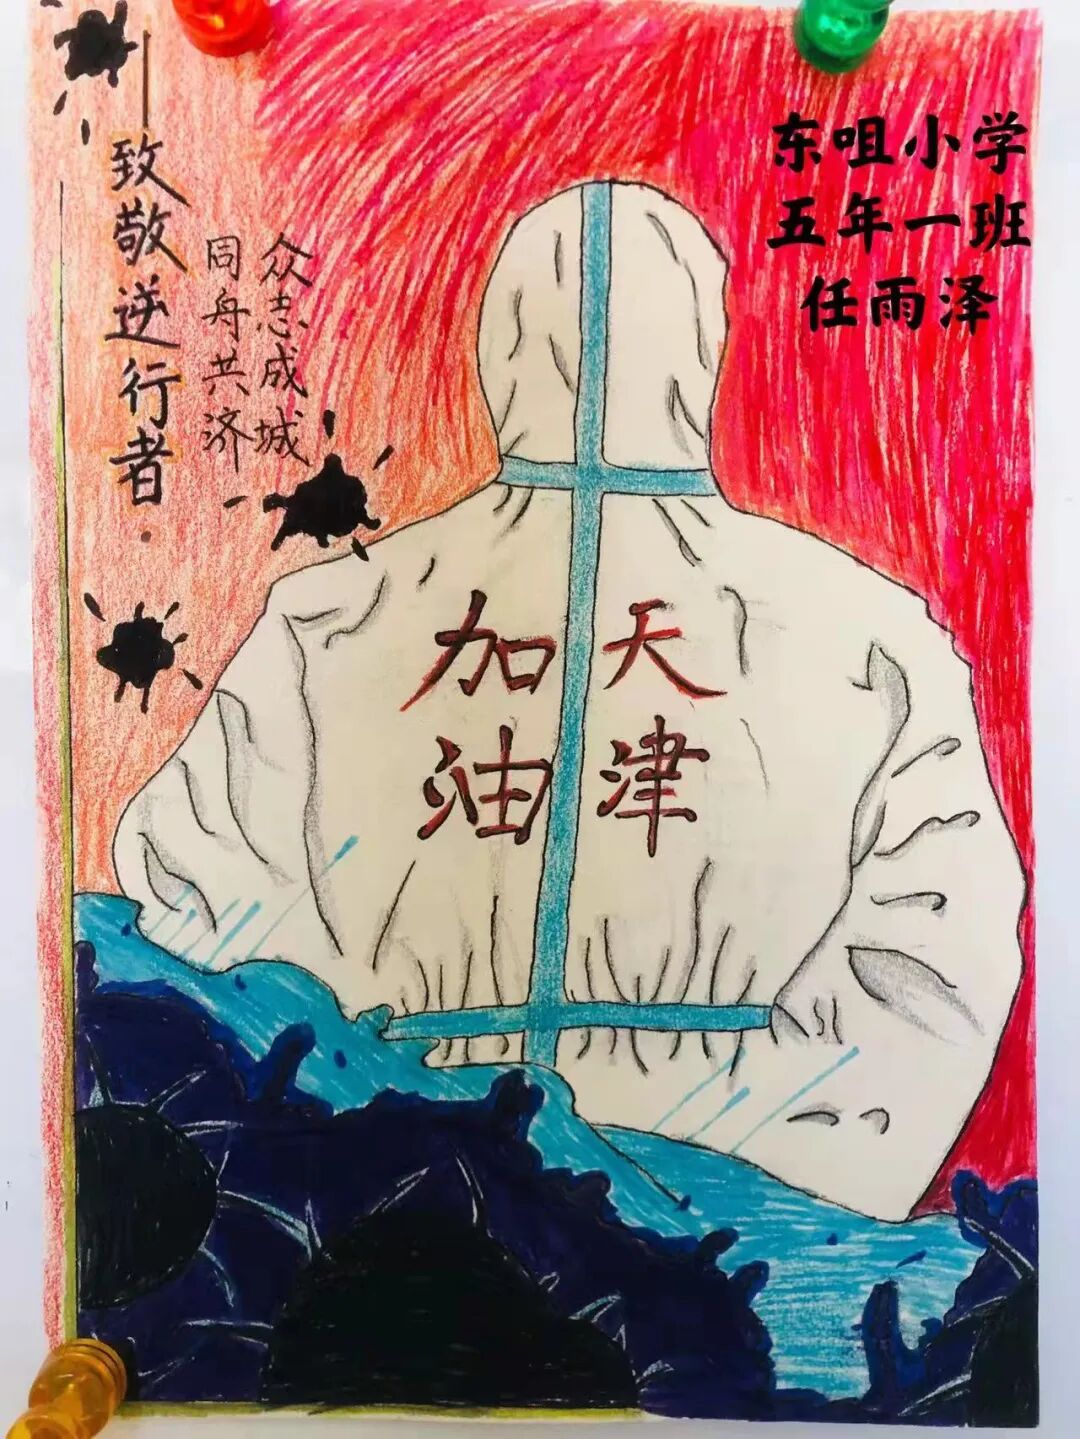 东咀小学
五年一班
任雨泽
——致敬逆行者.
众志成城
同舟共济
天津
加油